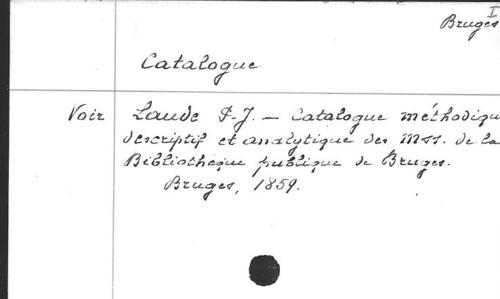 I
Bruges
Catalogue
Voir Laude P.-J. — Catalogue méthodiqu
descriptif et analytique des Mss. de la
Bibliothèque publique de Bruges.
Bruges, 1859.